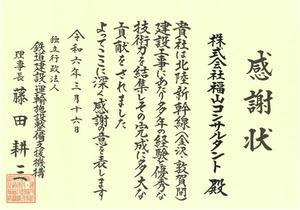 感謝状
株式会社福山コンサルタント 殿
貴社は北陸新幹線(金沢・敦賀間)
建設工事にあたり多年の経験と優秀な
技術力を結集しその完成に多大な
貢献をされました
よってここに深く感謝の意を表します
令和六年三月十六日
独立行政法人
鉄道建設・運輸施設整備支援機構
理事長 藤田耕三